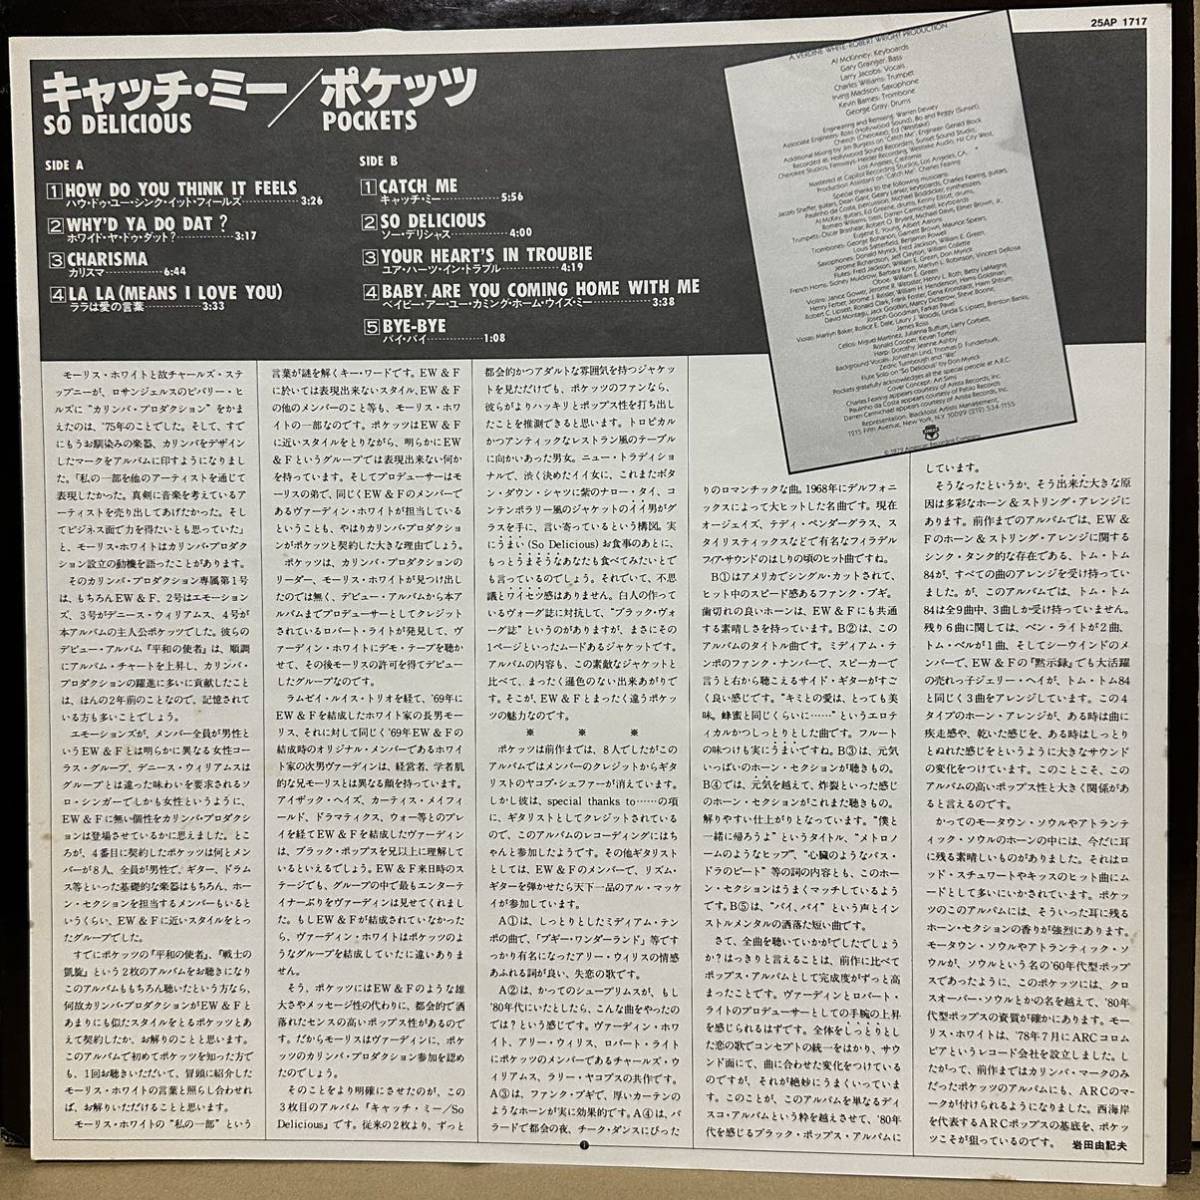 25AP 1717
キャッチ・ミー/ポケッツ
SO DELICIOUS
POCKETS
SIDE A
1 HOW DO YOU THINK IT FEELS
ハウ・ドゥ・ユー・シンク・イット・フィールズ 3:26
2 WHY'D YA DO DAT ?
ホワイド・ヤ・ドゥ・ダット? 3:17
3 CHARISMA
カリスマ 6:44
4 LA LA (MEANS I LOVE YOU)
ララは愛の言葉 3:33
SIDE B
1 CATCH ME
キャッチ・ミー 5:56
2 SO DELICIOUS
ソー・デリシャス 4:00
3 YOUR HEART'S IN TROUBIE
ユア・ハーツ・イン・トラブル 4:19
4 BABY, ARE YOU COMING HOME WITH ME
ベイビー・アー・ユー・カミング・ホーム・ウィズ・ミー 3:38
5 BYE-BYE
バイ・バイ 1:08
A VERDINE WHITE-ROBERT WRIGHT PRODUCTION
Al McKinney: Keyboards
Gary Grainger: Bass
Larry Jacobs: Vocals
Charles Williams: Trumpet
Irving Madison: Saxophone
Kevin Barnes: Trombone
George Gray: Drums
Engineering and Remixing: Warren Dewey
モーリス・ホワイトと故チャールズ・ステ
ップニーが、ロサンジェルスのビバリー・ヒ
ルズに“カリンバ・プロダクション”をかま
えたのは、'75年のことでした。そして、すで
にもうお馴染みの楽器、カリンバをデザイン
したマークをアルバムに印すようになりまし
た。「私の一部を他のアーティストを通じて
表現したかった。真剣に音楽を考えているア
ーティストを売り出してあげたかった。そし
てビジネス面で力を得たいとも思っていた」
と、モーリス・ホワイトはカリンバ・プロダク
ション設立の動機を語ったことがあります。
そのカリンバ・プロダクション専属第1号
は、もちろんEW&F、2号はエモーション
ズ、3号がデニース・ウィリアムス、4号が
本アルバムの主人公ポケッツでした。彼らの
デビュー・アルバム『平和の使者』は、順調
にアルバム・チャートを上昇し、カリンバ・
プロダクションの躍進に多いに貢献したこと
は、ほんの2年前のことなので、記憶されて
いる方も多いことでしょう。
エモーションズが、メンバー全員が男性と
いうEW&Fとは明らかに異なる女性コー
ラス・グループ、デニース・ウィリアムスは
グループとは違った味わいを要求されるソ
ロ・シンガーでしかも女性というように、
EW&Fに無い個性をカリンバ・プロダクシ
ョンは登場させているかに思えました。とこ
ろが、4番目に契約したポケッツは何とメン
バーが8人、全員が男性で、ギター、ドラム
ス等といった基礎的な楽器はもちろん、ホー
ン・セクションを担当するメンバーもいると
いうくらい、EW&Fに近いスタイルをとっ
たグループでした。
すでにポケッツの『平和の使者』、『戦士の
凱旋』という2枚のアルバムをお聴きになり
このアルバムももちろん聴いたという方なら、
何故カリンバ・プロダクションがEW&Fと
あまりにも似たスタイルをとるポケッツとあ
えて契約したか、お解りのことと思います。
このアルバムで初めてポケッツを知った方で
も、1回お聴きいただいて、冒頭に紹介した
モーリス・ホワイトの言葉と照らし合わせれ
ば、お解りいただけることと思います。
モーリス・ホワイトの“私の一部”という
言葉が謎を解くキー・ワードです。EW&F
に於いては表現出来ないスタイル、EW&F
の他のメンバーのこと等も、モーリス・ホワ
イトの一部なのです。ポケッツはEW&F
に近いスタイルをとりながら、明らかにEW
&Fというグループでは表現出来ない何か
を持っています。そしてプロデューサーはモ
ーリスの弟で、同じくEW&Fのメンバーで
あるヴァーディン・ホワイトが担当している
ということも、やはりカリンバ・プロダクシ
ョンがポケッツと契約した大きな理由でしょう。
ポケッツは、カリンバ・プロダクションの
リーダー、モーリス・ホワイトが見つけ出し
たのでは無く、デビュー・アルバムから本ア
ルバムまでプロデューサーとしてクレジット
されているロバート・ライトが発見して、ヴ
ァーディン・ホワイトにデモ・テープを聴か
せて、その後モーリスの許可を得てデビュー
したグループなのです。
ラムゼイ・ルイス・トリオを経て、'69年に
EW&Fを結成したホワイト家の長男モー
リス、それに対して同じく'69年EW&Fの
結成時のオリジナル・メンバーであるホワイ
ト家の次男ヴァーディンは、経営者、学者肌
的な兄モーリスとは異なる顔を持っています。
アイザック・ヘイズ、カーティス・メイフィ
ールド、ドラマティクス、ウォー等とのプレ
イを経てEW&Fを結成したヴァーディン
は、ブラック・ポップスを兄以上に理解して
いるといえるでしょう。EW&F来日時のス
テージでも、グループの中で最もエンターテ
イナーぶりをヴァーディンは見せてくれまし
た。もしEW&Fが結成されていなかった
なら、ヴァーディン・ホワイトはポケッツのよ
うなグループを結成していたに違いありま
せん。
そう、ポケッツにはEW&Fのような雄
大さやメッセージ性の代わりに、都会的で洒
落れたセンスの高いポップス性があるので
す。だからモーリスはヴァーディンに、ポケ
ッツのカリンバ・プロダクション参加を認め
たのでしょう。
そのことをより明確にさせたのが、この
3枚目のアルバム『キャッチ・ミー/So
Delicious』です。従来の2枚より、ずっと
都会的かつアダルトな雰囲気を持つジャケッ
トを見ただけでも、ポケッツのファンなら、
彼らがよりハッキリとポップス性を打ち出し
たことを推測できると思います。トロピカル
かつアンティックなレストラン風のテーブル
に向かいあった男女。ニュー・トラディショ
ナルで、渋く決めたイイ女に、これまたボタ
ン・ダウン・シャツに紫のナロー・タイ、コ
ンテンポラリー風のジャケットのイイ男がグ
ラスを手に、言い寄っているという構図。実
にうまい(So Delicious)お食事のあとに、
もっとうまそうなあなたも食べてみたいとで
も言っているのでしょう。それでいて、不思
議とワイセツ感はありません。白人の作って
いるヴォーグ誌に対抗して、“ブラック・ヴォ
ーグ誌”というのがありますが、まさにその
1ページといったムードあるジャケットです。
アルバムの内容も、この素敵なジャケットと
比べて、まったく遜色のない出来あがりで
す。そこが、EW&Fとまったく違うポケッ
ツの魅力なのです。
※ ※ ※
ポケッツは前作までは、8人でしたがこの
アルバムではメンバーのクレジットからギタ
リストのヤコブ・シェファーが消えています。
しかし彼は、special thanks to……の項
に、ギタリストとしてクレジットされている
ので、このアルバムのレコーディングにはち
ゃんと参加したようです。その他ギタリスト
としては、EW&Fのメンバーで、リズム・
ギターを弾かせたら天下一品のアル・マッケ
イが参加しています。
A①は、しっとりとしたミディアム・テン
ポの曲で、「ブギー・ワンダーランド」等です
っかり有名になったアリー・ウィリスの情感
あふれる詞が良い、失恋の歌です。
A②は、かつてのシュープリムスが、もし
'80年代にいたとしたら、こんな曲をやったの
では?という感じです。ヴァーディン・ホワ
イト、アリー・ウィリス、ロバート・ライト
にポケッツのメンバーであるチャールズ・ウ
ィリアムス、ラリー・ヤコブスの共作です。
A③は、ファンク・ブギで、厚いカーテンの
ようなホーンが実に効果的です。A④は、バ
ラードで都会の夜、チーク・ダンスにぴった
りのロマンチックな曲。1968年にデルフォニ
ックスによって大ヒットした名曲です。現在
オージェイズ、テディ・ペンダーグラス、ス
タイリスティックスなどで有名なフィラデル
フィア・サウンドのはしりの頃のヒット曲ですね。
B①はアメリカでシングル・カットされて、
ヒット中のスピード感あるファンク・ブギ。
歯切れの良いホーンは、EW&Fにも共通
する素晴しさを持っています。B②は、この
アルバムのタイトル曲です。ミディアム・テ
ンポのファンク・ナンバーで、スピーカーで
言うと右から聴こえるサイド・ギターがすご
く良い感じです。“キミとの愛は、とっても美
味。蜂蜜と同じくらいに……”というエロテ
ィカルかつしっとりとした曲です。フルート
の味つけも実にうまいですね。B③は、元気
いっぱいのホーン・セクションが聴きもの。
B④では、元気を越えて、炸裂といった感じ
のホーン・セクションがこれまた聴きもの。
解りやすい仕上がりとなっています。“僕と
一緒に帰ろうよ”というタイトル、“メトロノ
ームのようなヒップ”、“心臓のようなバス・
ドラのビート”等の詞の内容とも、このホー
ン・セクションはうまくマッチしているよう
です。B⑤は、“バイ、バイ”という声とイン
ストルメンタルの洒落た短い曲です。
さて、全曲を聴いていかがでしたでしょう
か?はっきりと言えることは、前作に比べて
ポップス・アルバムとして完成度がずっと高
まったことです。ヴァーディンとロバート・
ライトのプロデューサーとしての手腕の上昇
を感じられるはずです。全体をしっとりとし
た恋の歌でコンセプトの統一をはかり、サウ
ンド面にて、曲に合わせた変化をつけている
のですが、それが絶妙にうまくいっていま
す。このことが、このアルバムを単なるディ
スコ・アルバムという枠を越えさせて、'80年
代を感じるブラック・ポップス・アルバムに
しています。
そうなったというか、そう出来た大きな原
因は多彩なホーン&ストリング・アレンジに
あります。前作までのアルバムでは、EW&
Fのホーン&ストリング・アレンジに関する
シンク・タンク的な存在である、トム・トム
84が、すべての曲のアレンジを受け持ってい
ました。が、このアルバムでは、トム・トム
84は全9曲中、3曲しか受け持っていません。
残り6曲に関しては、ベン・ライトが2曲、
トム・ベルが1曲、そしてシーウインドのメ
ンバーで、EW&Fの『黙示録』でも大活躍
の売れっ子ジェリー・ヘイが、トム・トム84
と同じく3曲をアレンジしています。この4
タイプのホーン・アレンジが、ある時は曲に
疾走感や、乾いた感じを、ある時はしっとり
とぬれた感じをというように大きなサウンド
の変化をつけています。このことこそ、この
アルバムの高いポップス性と大きく関係があ
ると言えるのです。
かってのモータウン・ソウルやアトランテ
ィック・ソウルのホーンの中には、今だに耳
に残る素晴しいものがありました。それはロ
ッド・スチュワートやキッスのヒット曲にム
ードとして多いにいかされています。ポケッ
ツのこのアルバムには、そういった耳に残る
ホーン・セクションの香りが強烈にあります。
モータウン・ソウルやアトランティック・ソ
ウルが、ソウルという名の'60年代型ポップ
スであったように、このポケッツには、クロ
スオーバー・ソウルとかの名を越えて、'80年
代型ポップスの資質が確かにあります。モー
リス・ホワイトは、'78年7月にARCコロム
ビアというレコード会社を設立しました。し
たがって、前作まではカリンバ・マークのみ
だったポケッツのアルバムにも、ARCのマ
ークが付けられるようになりました。西海岸
を代表するARCポップスの基底を、ポケッ
ツこそが狙っているのです。 岩田由記夫